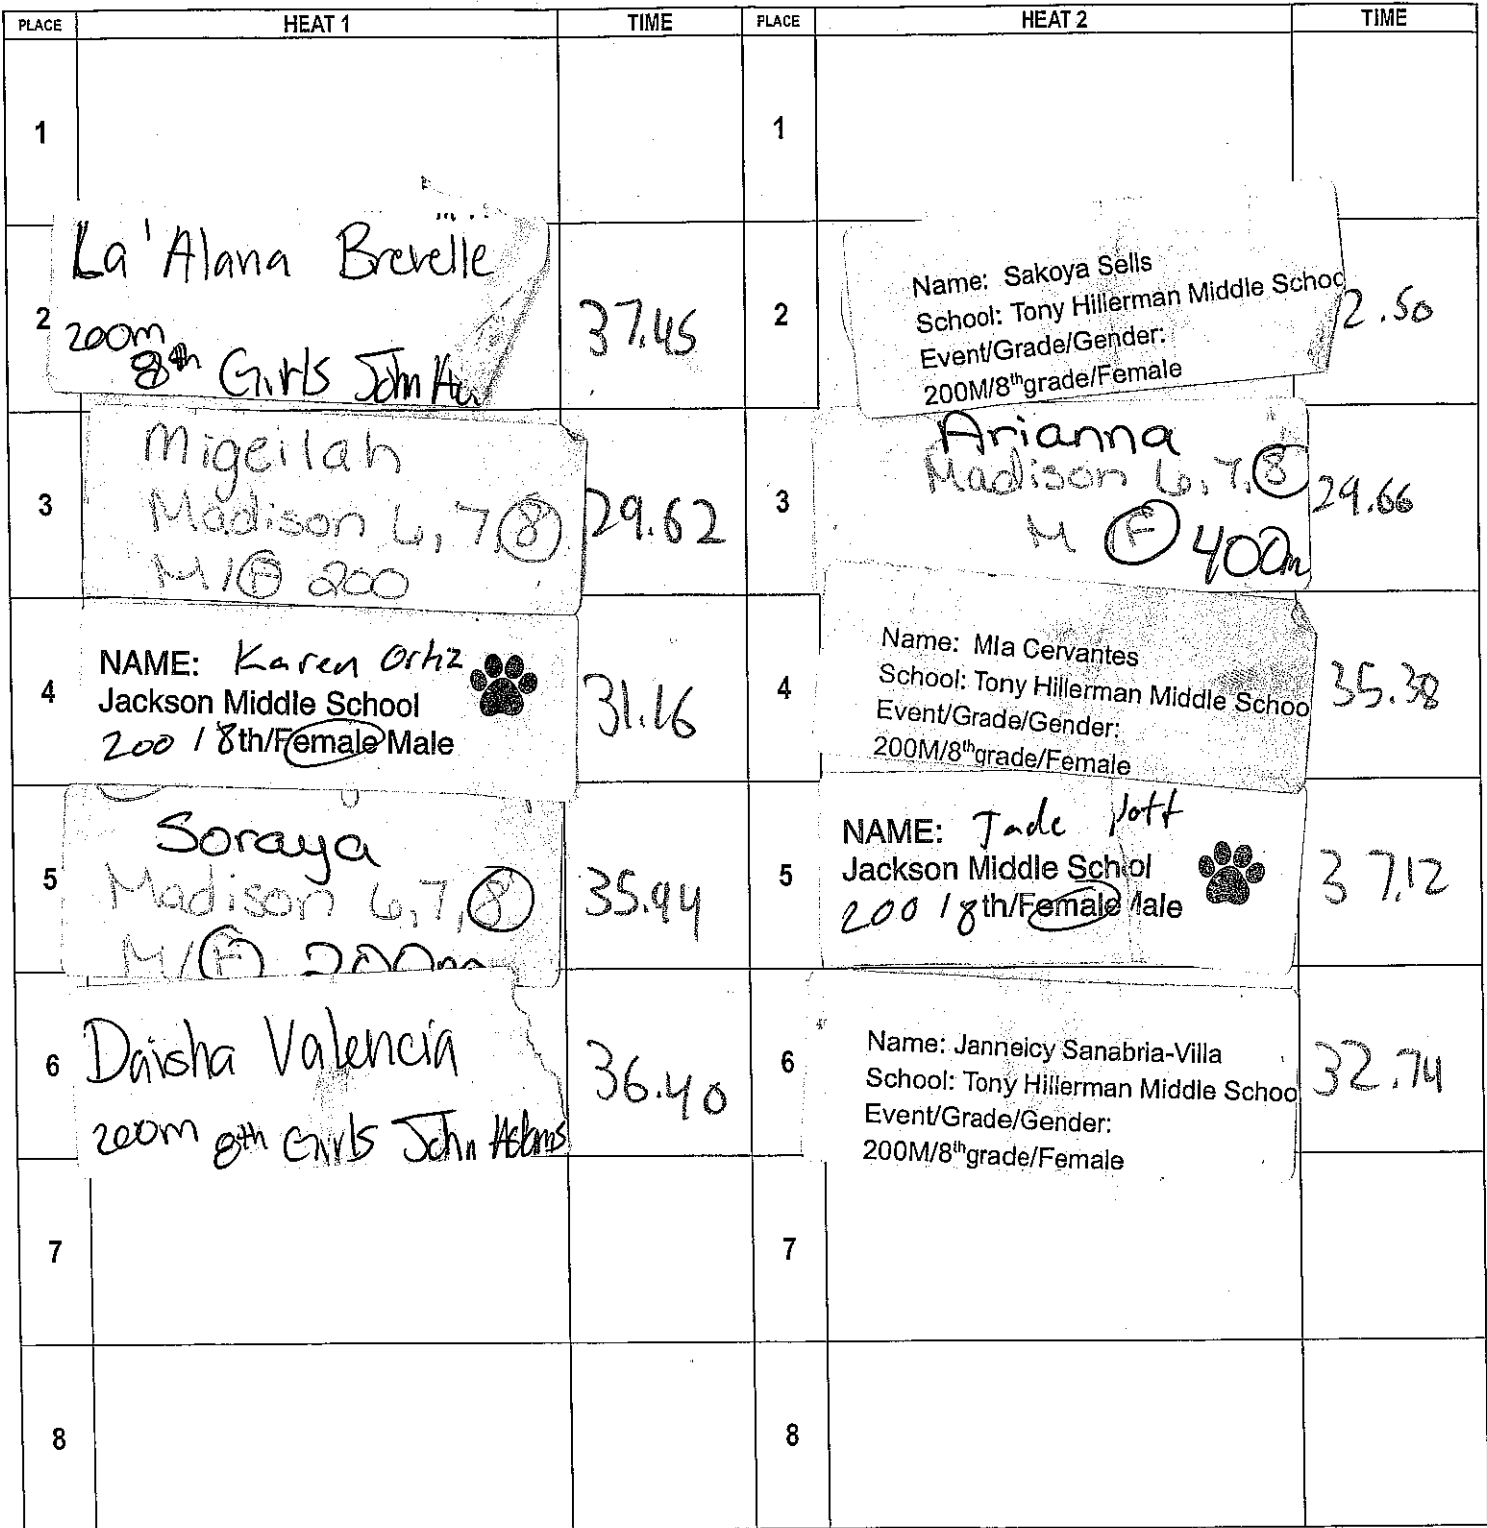 PLACE HEAT 1 TIME PLACE HEAT 2 TIME
1
1
La'Alana Brevelle
2
200m
8th Girls John
37.45
2
Name: Sakoya Sells
School: Tony Hillerman Middle Schoo
Event/Grade/Gender:
200M/8thgrade/Female
2.50
3
Migeilah
Madison 6, 7, 8
M/F 200
29.62
3
Arianna
Madison 6, 7, 8
M F 400m
29.66
4
NAME: Karen Ortiz
Jackson Middle School
200 / 8th/Female Male
31.16
4
Name: MIa Cervantes
School: Tony Hillerman Middle Schoo
Event/Grade/Gender:
200M/8thgrade/Female
35.38
5
Soraya
Madison 6, 7, 8
M/F 200m
35.94
5
NAME: Jade
Jackson Middle School
200 / 8th/Female Male
37.12
6
Daisha Valencia
200m 8th Girls John Adams
36.40
6
Name: Janneicy Sanabria-Villa
School: Tony Hillerman Middle Schoo
Event/Grade/Gender:
200M/8thgrade/Female
32.74
7
7
8
8